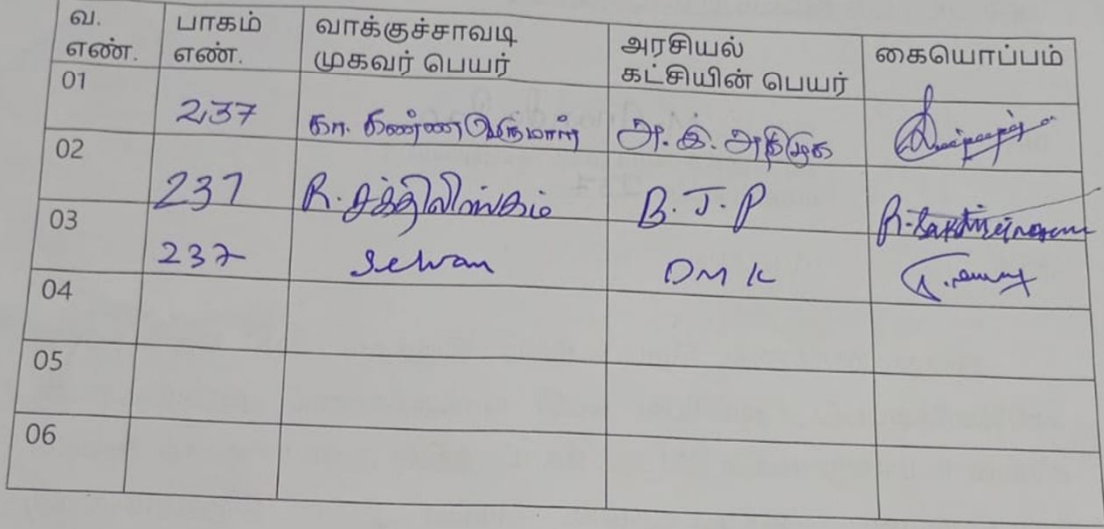 வ. எண். பாகம் எண். வாக்குச்சாவடி முகவர் பெயர் அரசியல் கட்சியின் பெயர் கையொப்பம்
01 237 கா. கண்ணபெருமாள் அ.இ.அதிமுக
02 237 R. சக்திலிங்கம் B.J.P
03 237 Selvan DMK
04
05
06